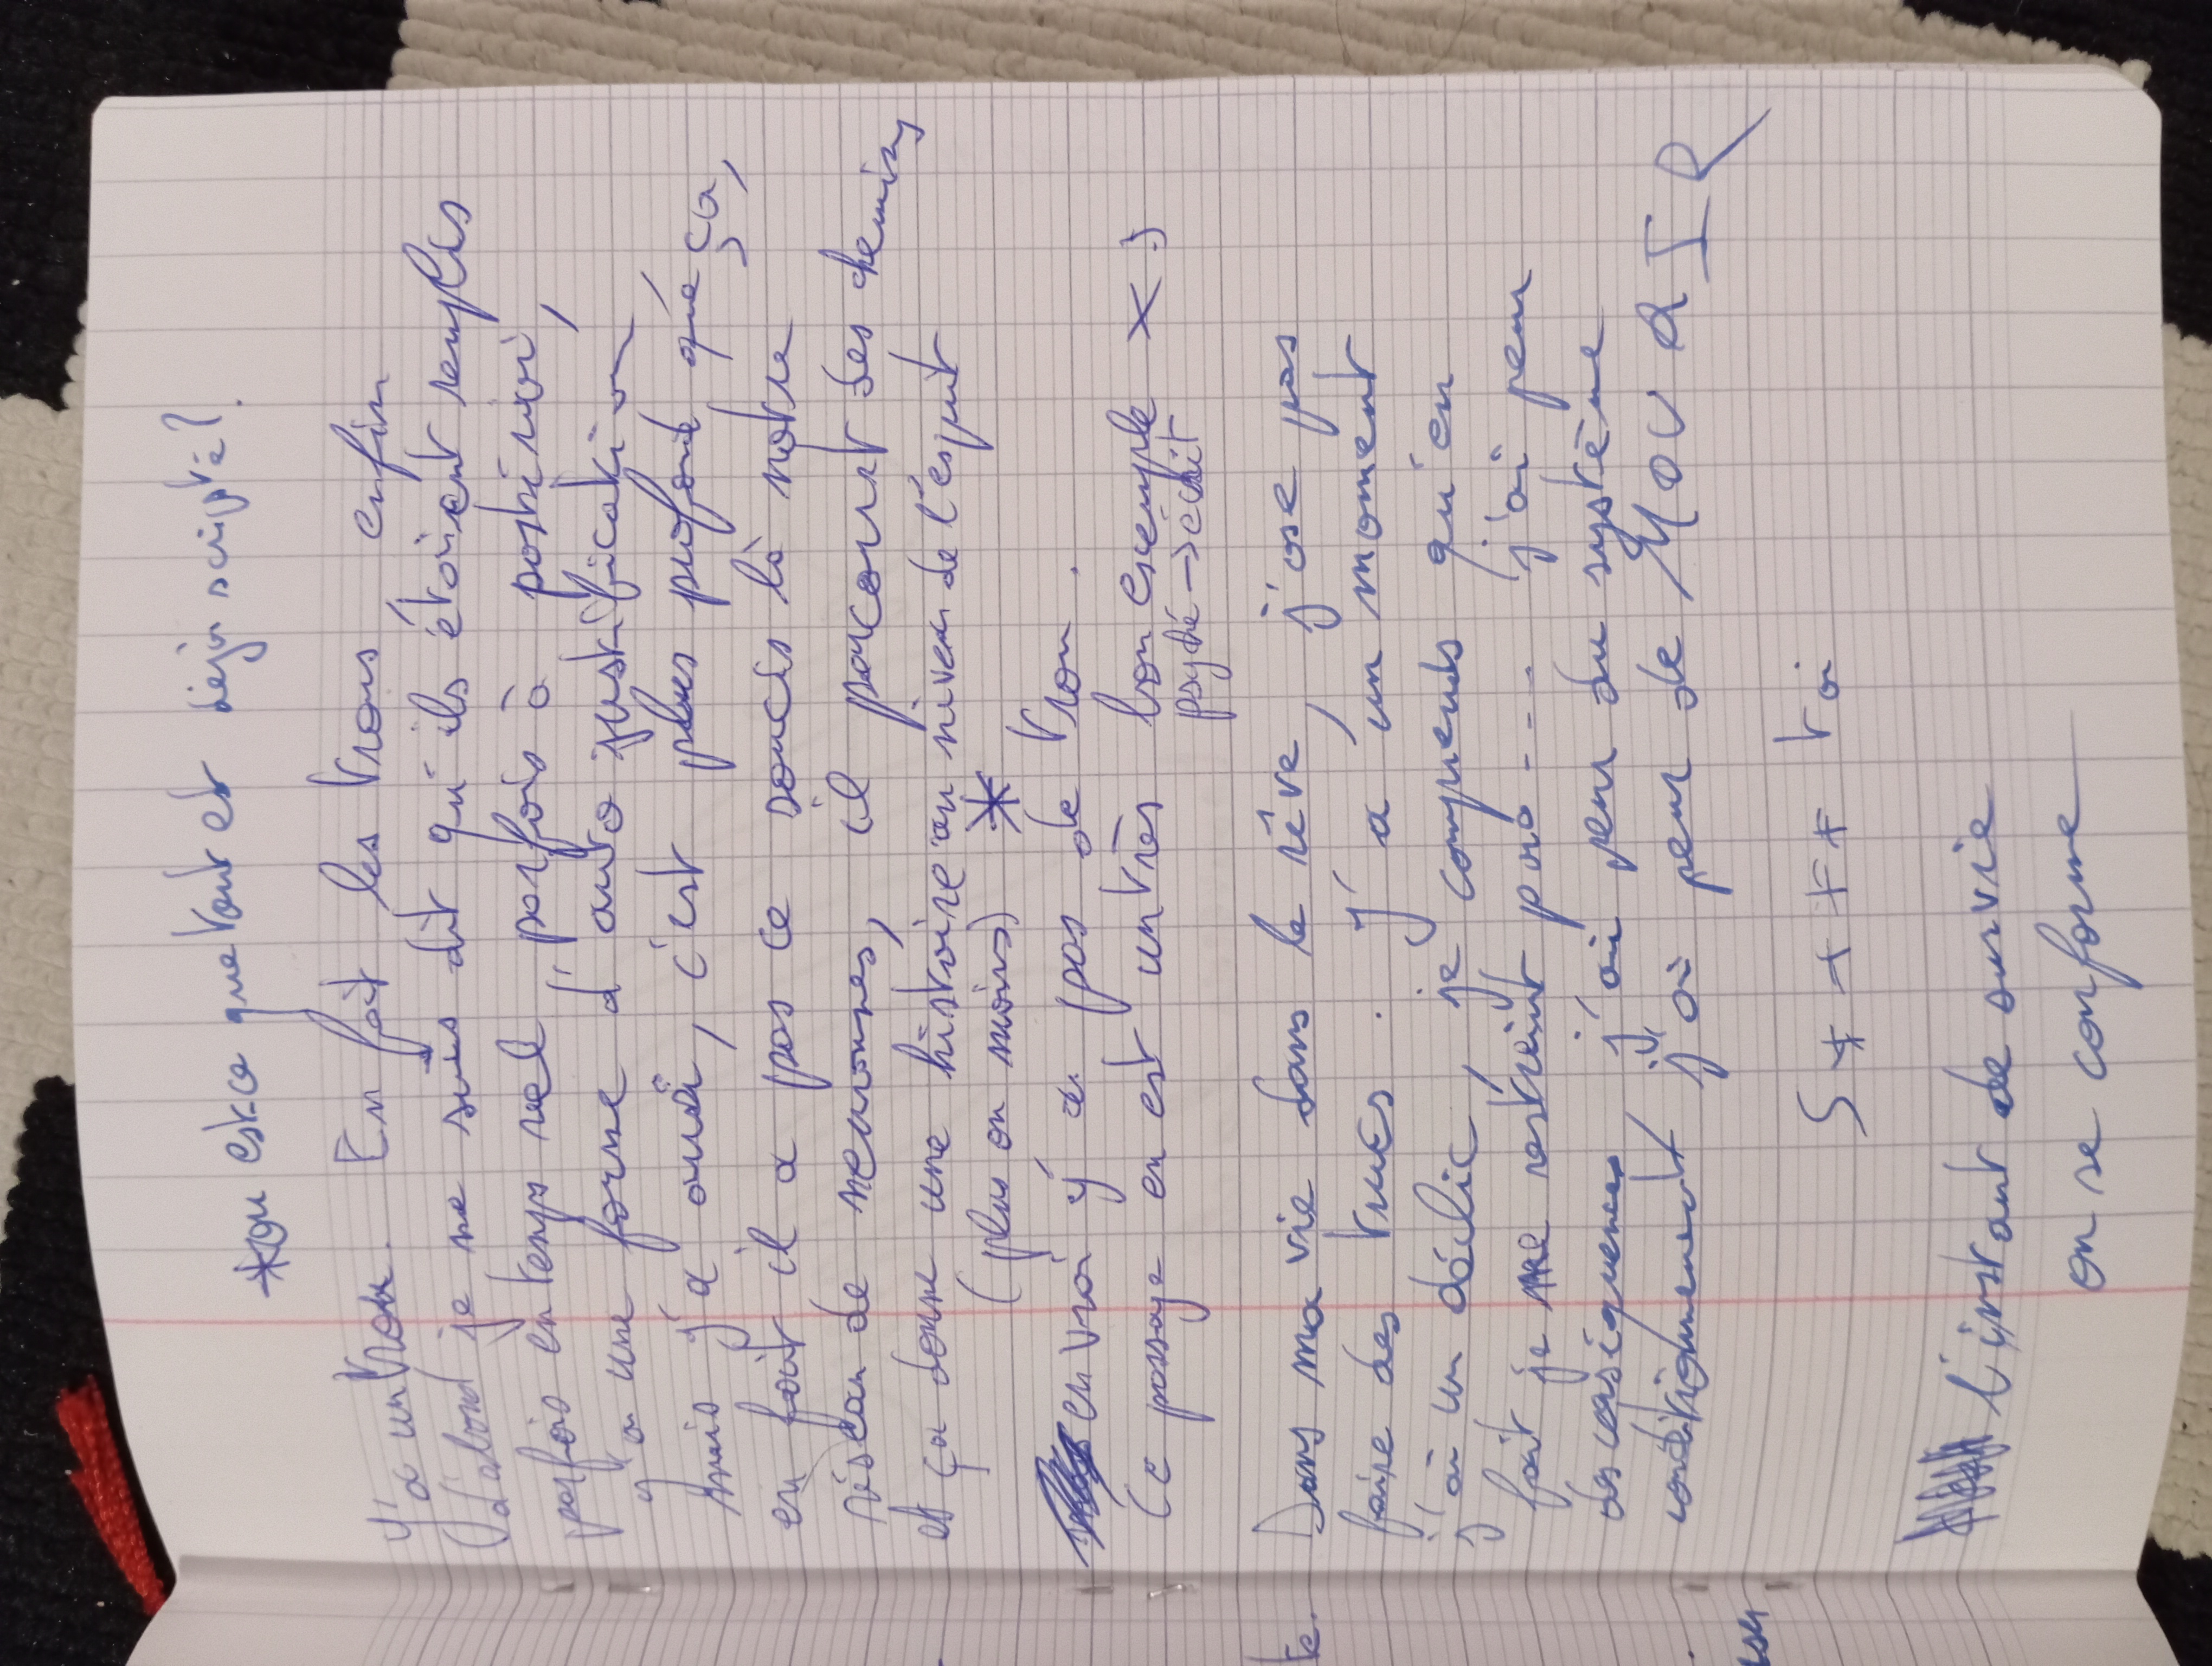 *ou est-ce que tout est déjà scripté?
Y'a un trou. En fait les trous, enfin
d'abord je me suis dit qu'ils étaient remplis
parfois en temps réel, parfois à postériori,
y'a une forme d'auto justification
mais y'a aussi, c'est plus profond que ça,
en fait il a pas ce soucis là notre
réseau de neuronnes, il parcourt des chemins
et ça donne une histoire au niveau de l'esprit
(plus ou moins) *
en vrai y'a pas de trou.
Ce passage en est un très bon exemple
psyché → écrit
te.
Dans ma vie dans le rêve, j'ose pas
faire des trucs. Y'a un moment
j'ai un déclic, je comprends qu'en
fait je me restreint parc--- j'ai peur
des conséquences, j'ai peur du système
conditionnement j'ai peur de MOURIR
S**** toi
l'instant de survie
on se conforme